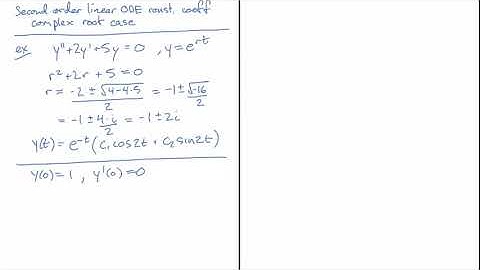 Second order linear ODE const. coeff
complex root case
ex y"+2y'+5y=0 , y=e^{rt}
r²+2r+5=0
r = (-2 ± √(4-4·5))/2 = -1 ± √(-16)/2
= -1 ± 4·i/2 = -1 ± 2i
y(t) = e^{-t}(c₁cos2t + c₂sin2t)
y(0)=1 , y'(0)=0